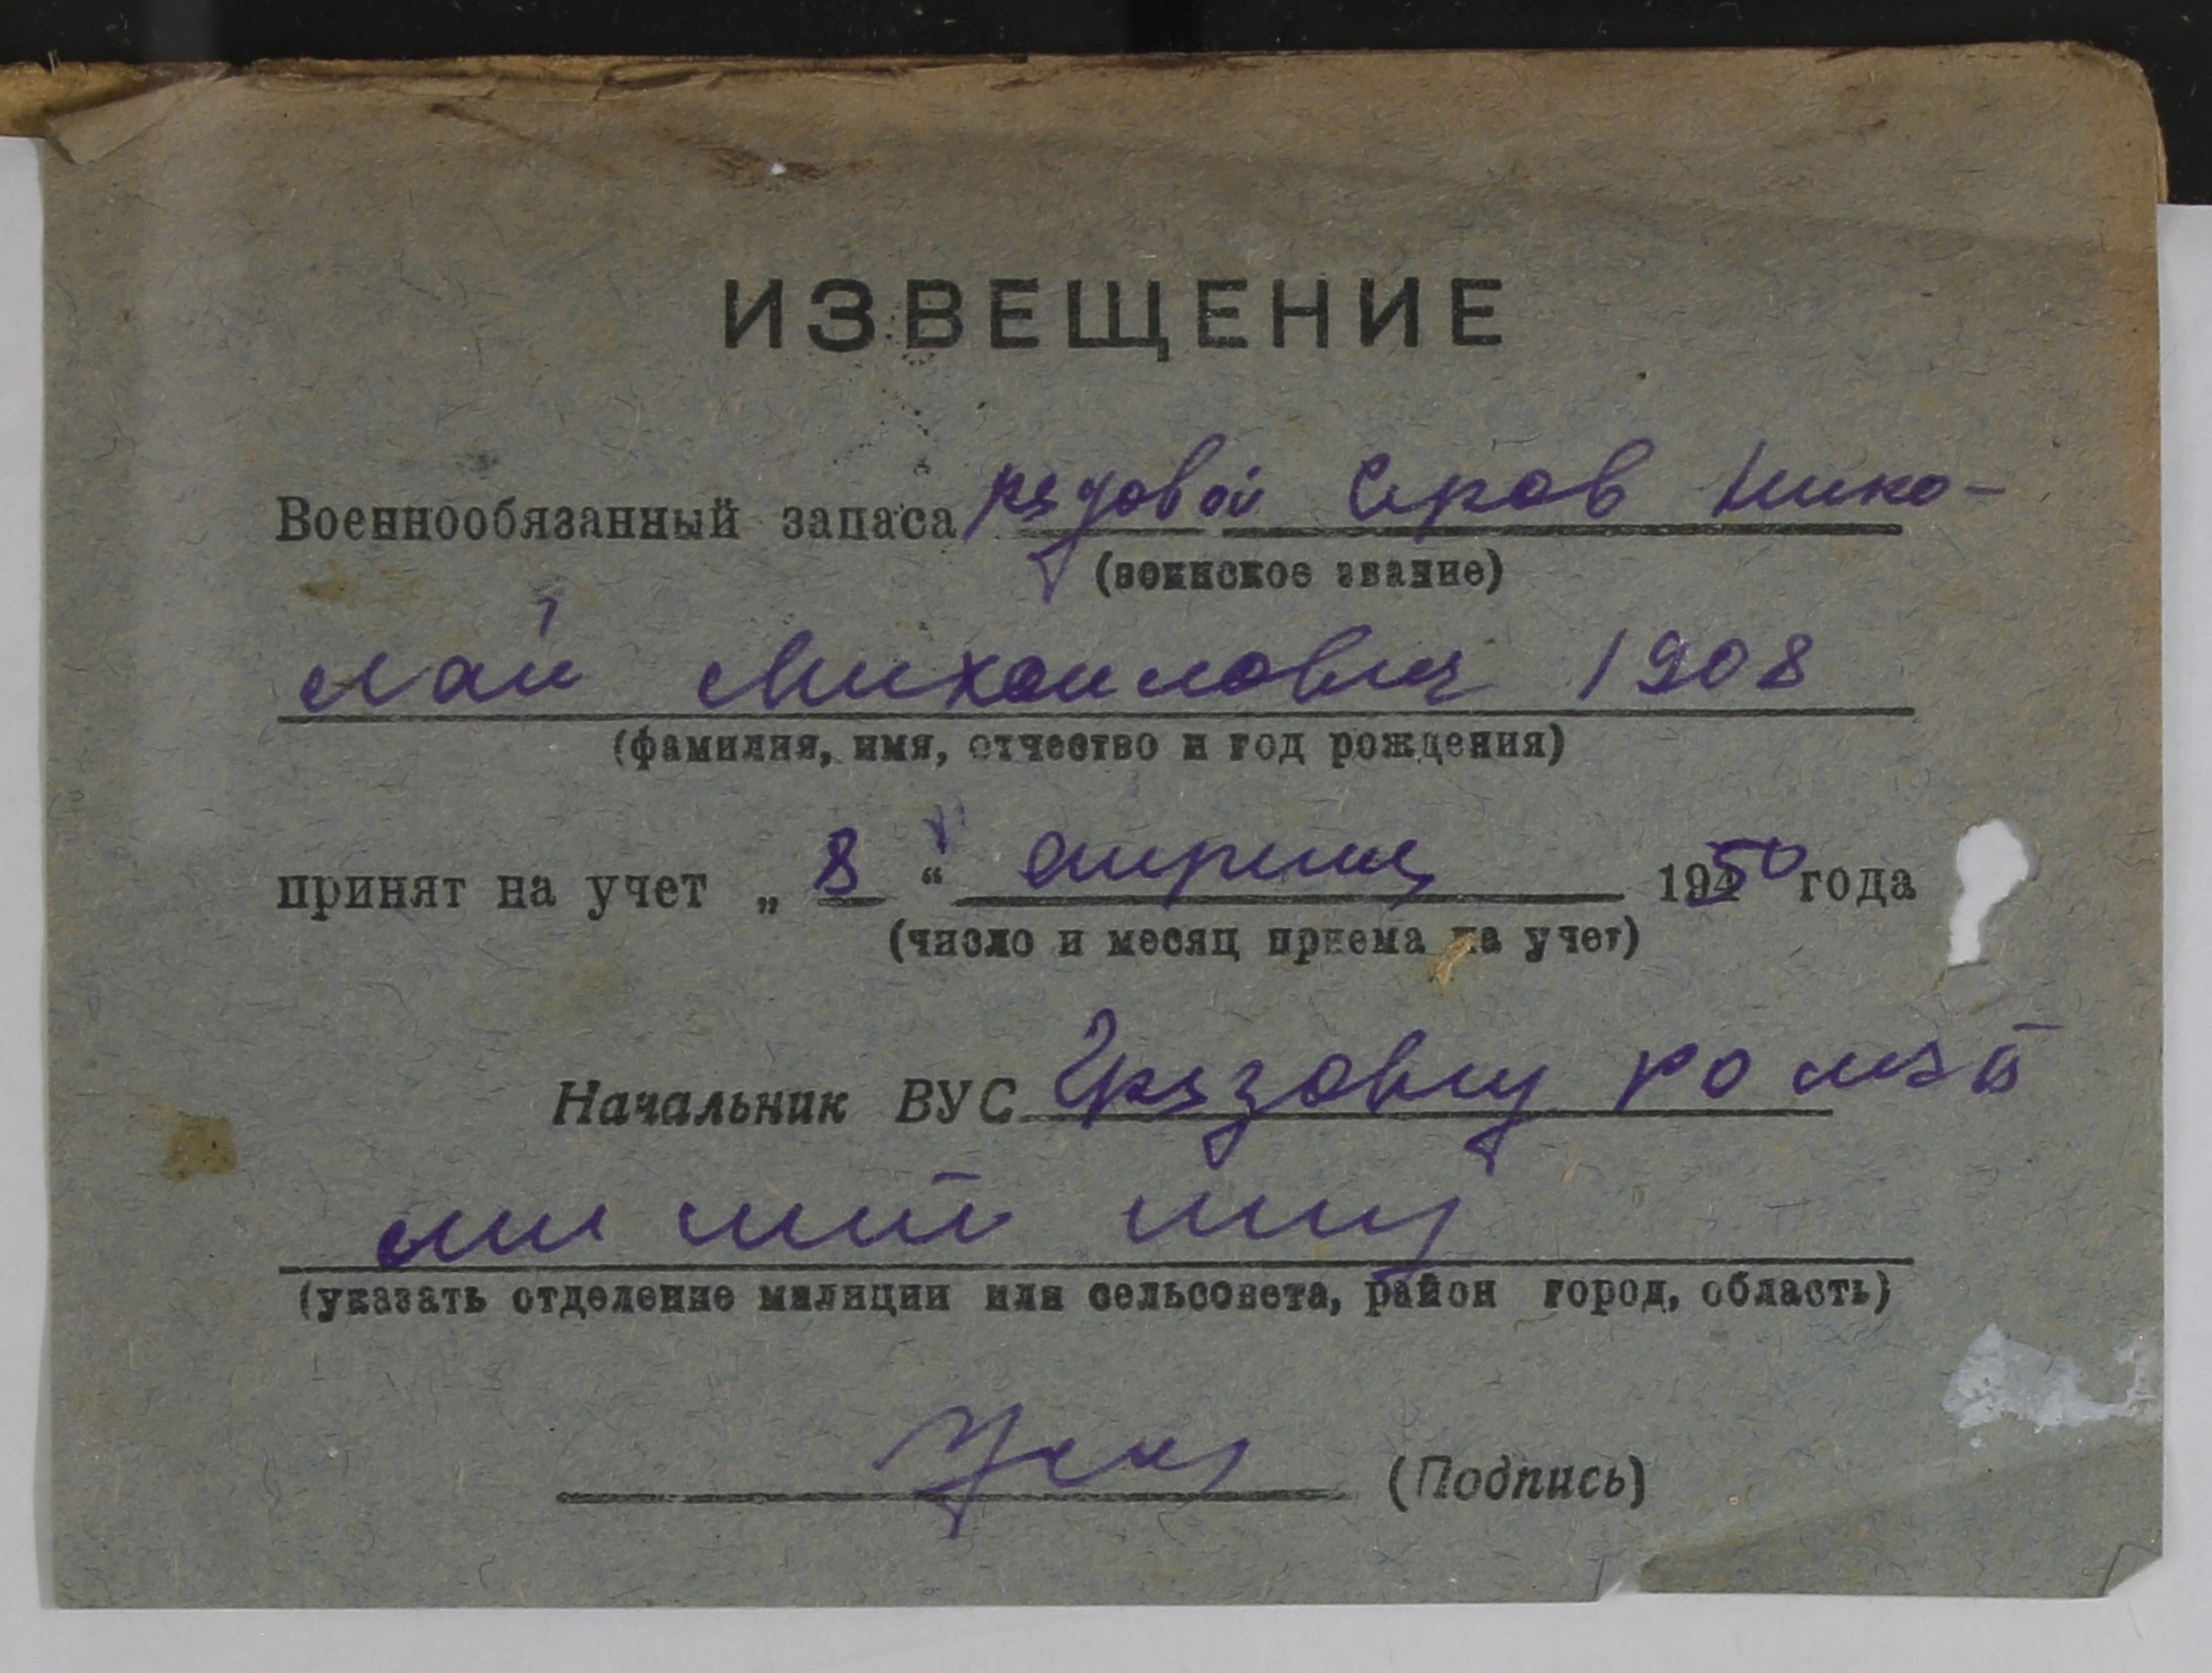 ИЗВЕЩЕНИЕ
Военнообязанный запаса рядовой Серов Нико-
(воинское звание)
лай Михаилович 1908
(фамилия, имя, отчество и год рождения)
принят на учет „ 8 “ апреля 1950 года
(число и месяц приема на учет)
Начальник ВУС
(указать отделение милиции или сельсовета, район город, область)
(Подпись)